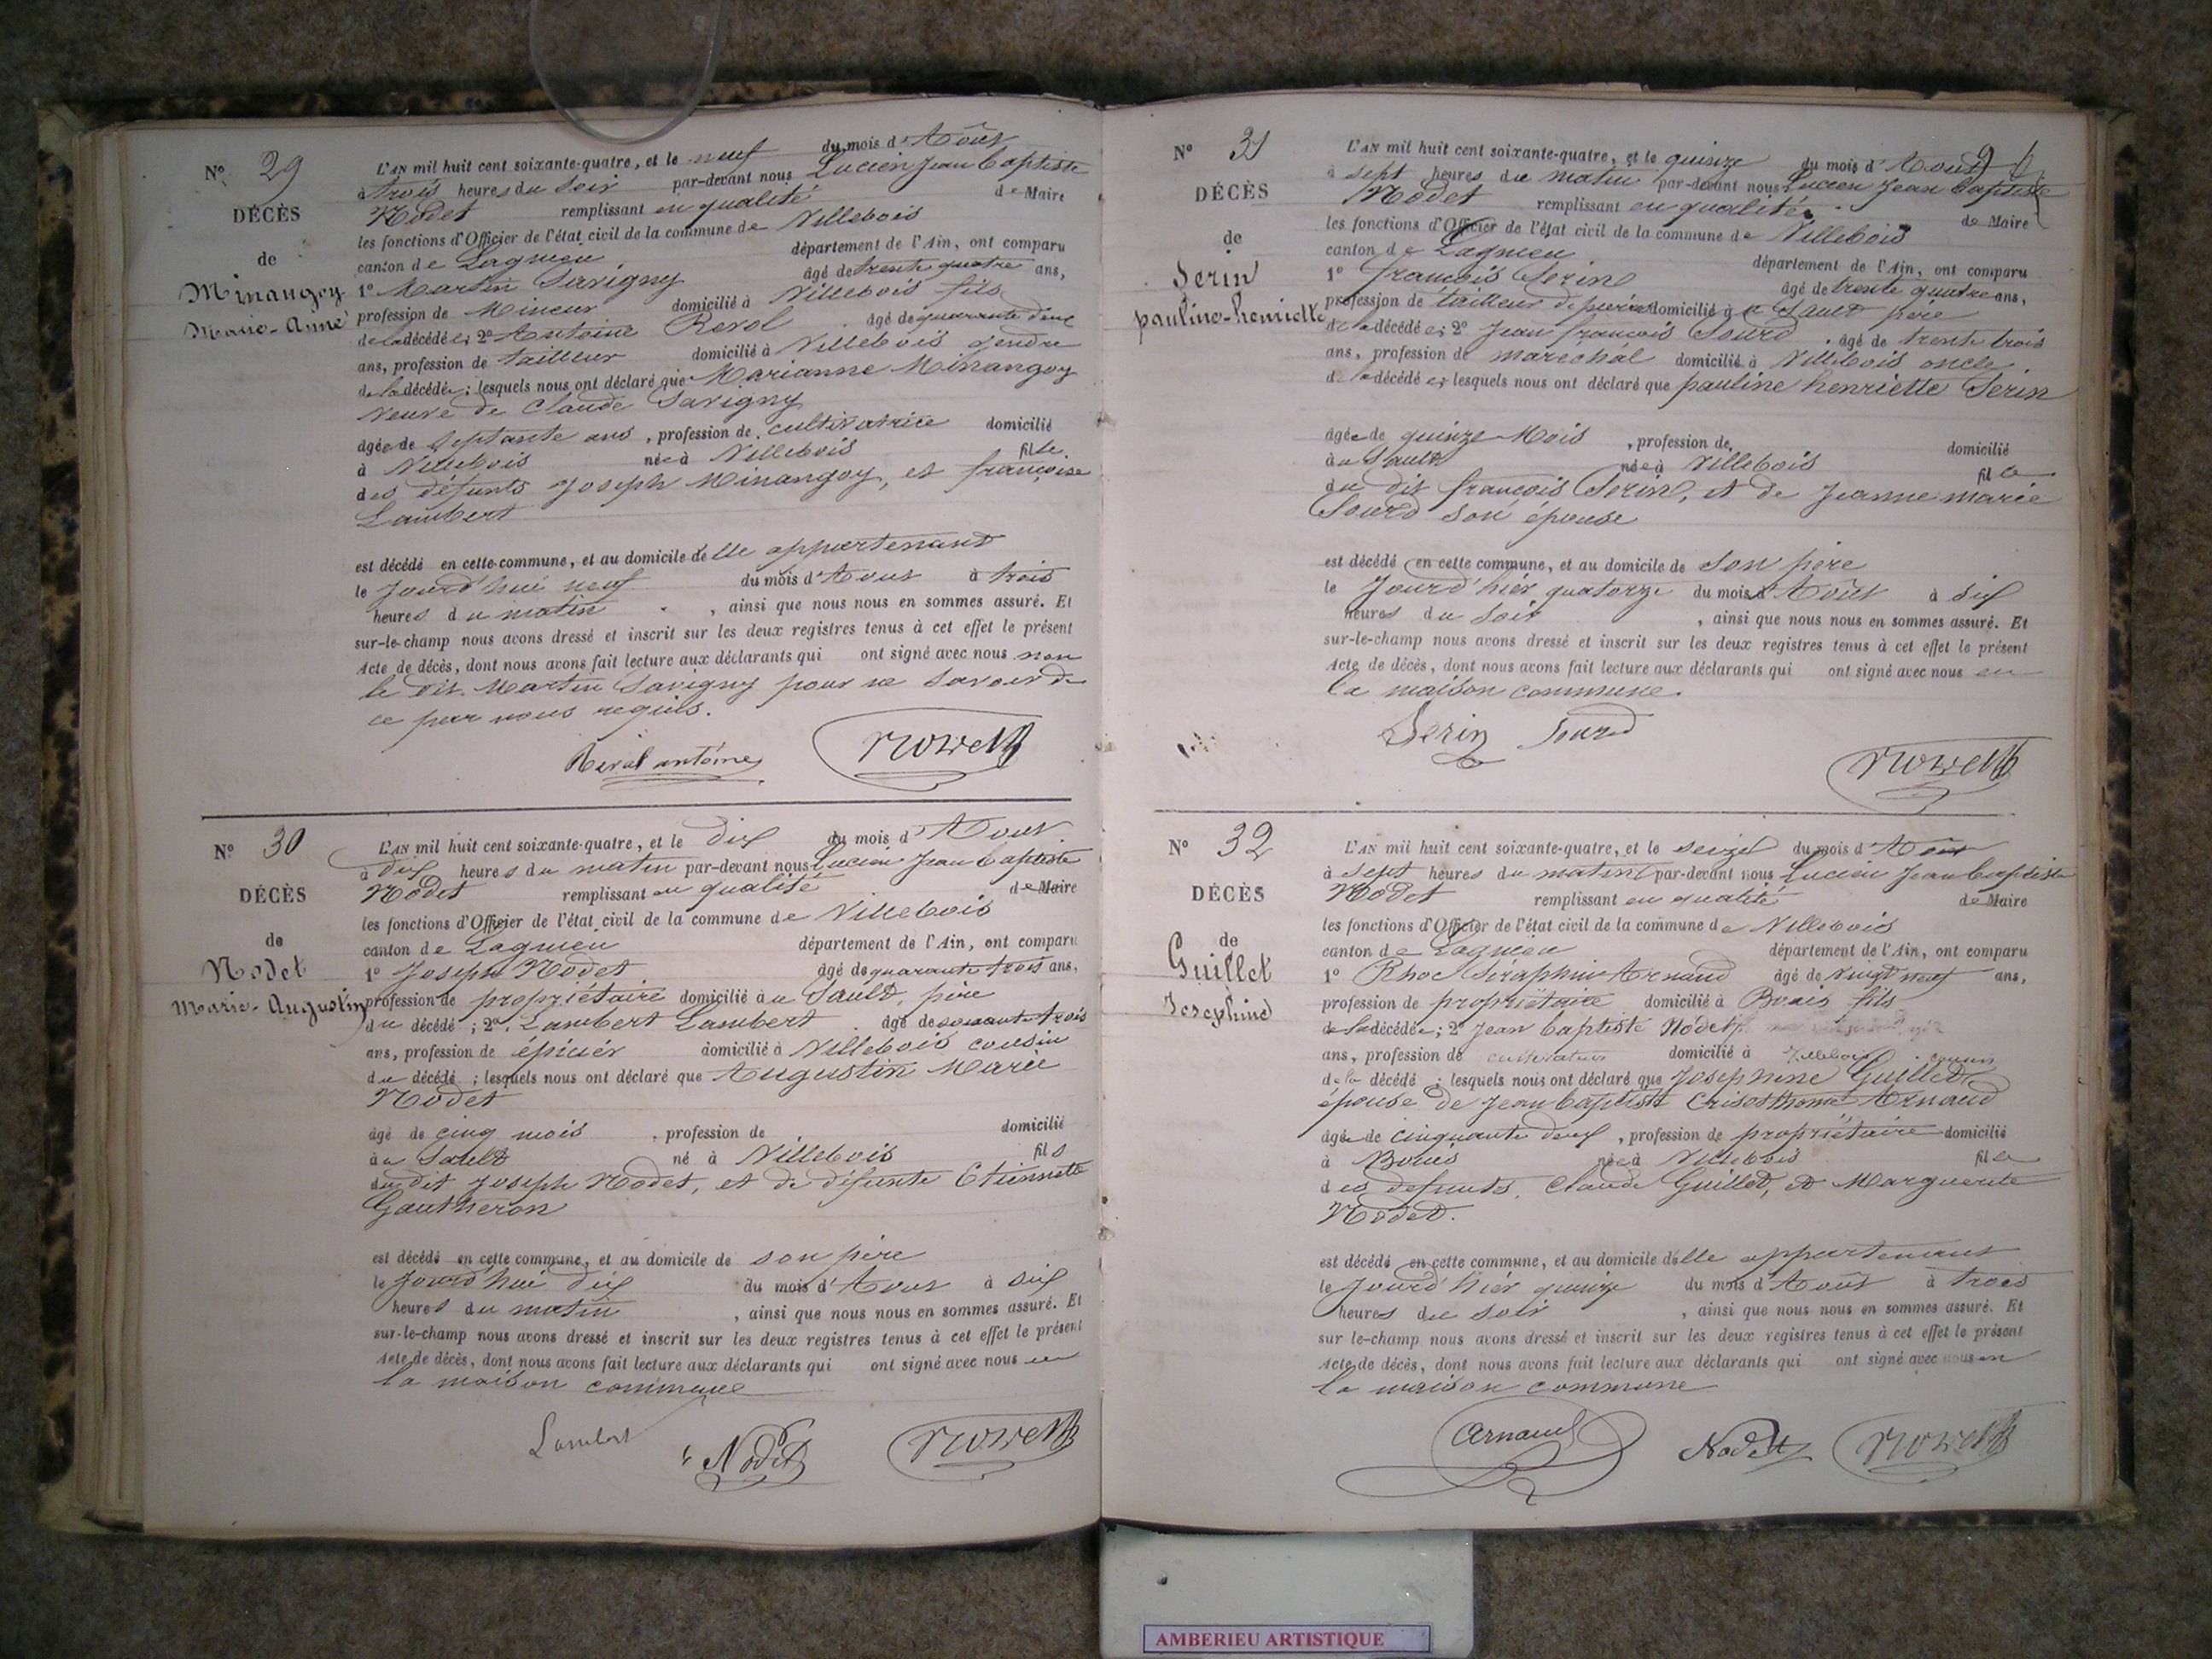 N° 29
DÉCÈS
de
Minangoy
Marie-Anne
L'AN mil huit cent soixante-quatre, et le neuf du mois d'Août
à trois heures du soir par-devant nous Lucien Jean Baptiste
Nodet remplissant en qualité de Maire
les fonctions d'Officier de l'état civil de la commune de Villebois
canton de Lagnieu département de l'Ain, ont comparu
1° Martin Savigny âgé de trente quatre ans,
profession de Mineur domicilié à Villebois fils
de la décédée; 2° Antoine Revol âgé de quarante deux
ans, profession de tailleur domicilié à Villebois gendre
de la décédée; lesquels nous ont déclaré que Marianne Minangoy
veuve de Claude Savigny
âgée de septante ans, profession de cultivatrice domicilié
à Villebois née à Villebois fille
des défunts Joseph Minangoy, et françoise
Lambert
est décédé en cette commune, et au domicile delle appartenant
le Jourd'hui neuf du mois d'Aout à trois
heures du matin, ainsi que nous nous en sommes assuré. Et
sur-le-champ nous avons dressé et inscrit sur les deux registres tenus à cet effet le présent
Acte de décès, dont nous avons fait lecture aux déclarants qui ont signé avec nous non
le dit Martin Savigny pour ne savoir de
ce par nous requis.
Revol antoine
N° 30
DÉCÈS
de
Nodet
Marie-Augustin
L'AN mil huit cent soixante-quatre, et le dix du mois d'Aout
à dix heures du matin par-devant nous Lucien Jean Baptiste
Nodet remplissant en qualité de Maire
les fonctions d'Officier de l'état civil de la commune de Villebois
canton de Lagnieu département de l'Ain, ont comparu
1° Joseph Nodet âgé de quarante trois ans,
profession de propriétaire domicilié au Sault, père
du décédé; 2° Lambert Lambert âgé de soixante trois
ans, profession de épicier domicilié à Villebois cousin
du décédé; lesquels nous ont déclaré que Augustin Marie
Nodet
âgé de cinq mois, profession de domicilié
au Sault né à Villebois fils
du dit Joseph Nodet, et de défunte Etiennette
Gautheron
est décédé en cette commune, et au domicile de son père
le Jourd'hui dix du mois d'Aout à six
heures du matin, ainsi que nous nous en sommes assuré. Et
sur-le-champ nous avons dressé et inscrit sur les deux registres tenus à cet effet le présent
Acte de décès, dont nous avons fait lecture aux déclarants qui ont signé avec nous en
la maison commune
Lambert Nodet
N° 31
DÉCÈS
de
Serin
pauline-henriette
L'AN mil huit cent soixante-quatre, et le quinze du mois d'Aout
à sept heures du matin par-devant nous Lucien Jean Baptiste
Nodet remplissant en qualité de Maire
les fonctions d'Officier de l'état civil de la commune de Villebois
canton de Lagnieu département de l'Ain, ont comparu
1° françois Serin âgé de trente quatre ans,
profession de tailleur de pierre domicilié au Sault père
de la décédée; 2° Jean françois Sourd âgé de trente trois
ans, profession de marechal domicilié à Villebois oncle
de la décédée; lesquels nous ont déclaré que pauline henriette Serin
âgée de quinze Mois, profession de domicilié
au Sault née à Villebois fille
du dit françois Serin, et de Jeanne marie
Sourd son épouse
est décédé en cette commune, et au domicile de son père
le Jourd'hier quatorze du mois d'Août à six
heures du soir, ainsi que nous nous en sommes assuré. Et
sur-le-champ nous avons dressé et inscrit sur les deux registres tenus à cet effet le présent
Acte de décès, dont nous avons fait lecture aux déclarants qui ont signé avec nous en
la maison commune.
Serin Sourd
N° 32
DÉCÈS
de
Guillet
Josephine
L'AN mil huit cent soixante-quatre, et le seize du mois d'Août
à sept heures du matin par-devant nous Lucien Jean Baptiste
Nodet remplissant en qualité de Maire
les fonctions d'Officier de l'état civil de la commune de Villebois
canton de Lagnieu département de l'Ain, ont comparu
1° Rhoc Séraphin Arnaud âgé de vingt neuf ans,
profession de propriétaire domicilié à Bouis fils
de la décédée; 2° Jean baptiste Nodet
ans, profession de cultivateur domicilié à Villebois cousin
de la décédé; lesquels nous ont déclaré que Josephine Guillet
épouse de Jean baptiste Crisosthome Arnaud
âgée de cinquante deux, profession de propriétaire domicilié
à Bouis née à Villebois fille
des defunts, Claude Guillet, et Marguerite
Nodet.
est décédé en cette commune, et au domicile delle appartenant
le Jourd'hier quinze du mois d'Août à trois
heures du soir, ainsi que nous nous en sommes assuré. Et
sur le-champ nous avons dressé et inscrit sur les deux registres tenus à cet effet le présent
Acte de décès, dont nous avons fait lecture aux déclarants qui ont signé avec nous en
la maison commune
Arnaud Nodet
AMBERIEU ARTISTIQUE